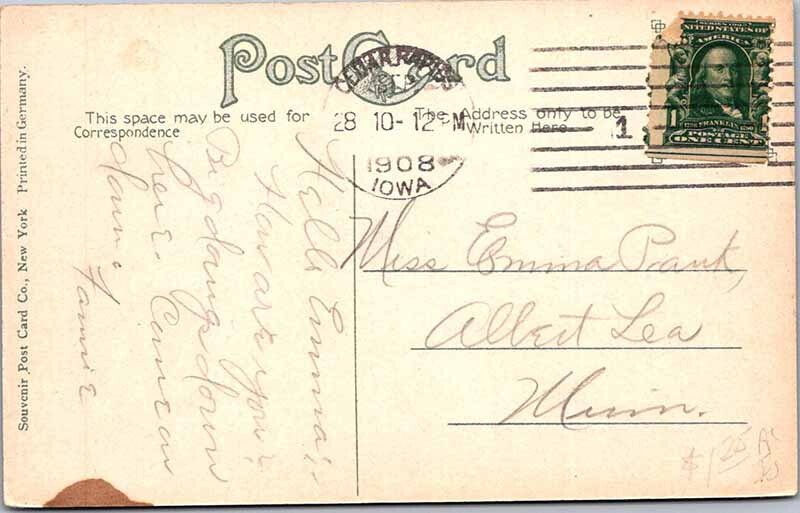 Post Card
This space may be used for
Correspondence
The Address only to be
Written Here
CEDAR RAPIDS
28 10-12 PM
1908
IOWA
1
SERIES 1902
UNITED STATES OF
AMERICA
FRANKLIN
POSTAGE
ONE CENT
Hello Emma:
How are you?
Big doings down
here.
down.
Fannie
Miss Emma Prank,
Albert Lea
Minn.
Souvenir Post Card Co., New York Printed in Germany.
$1.25